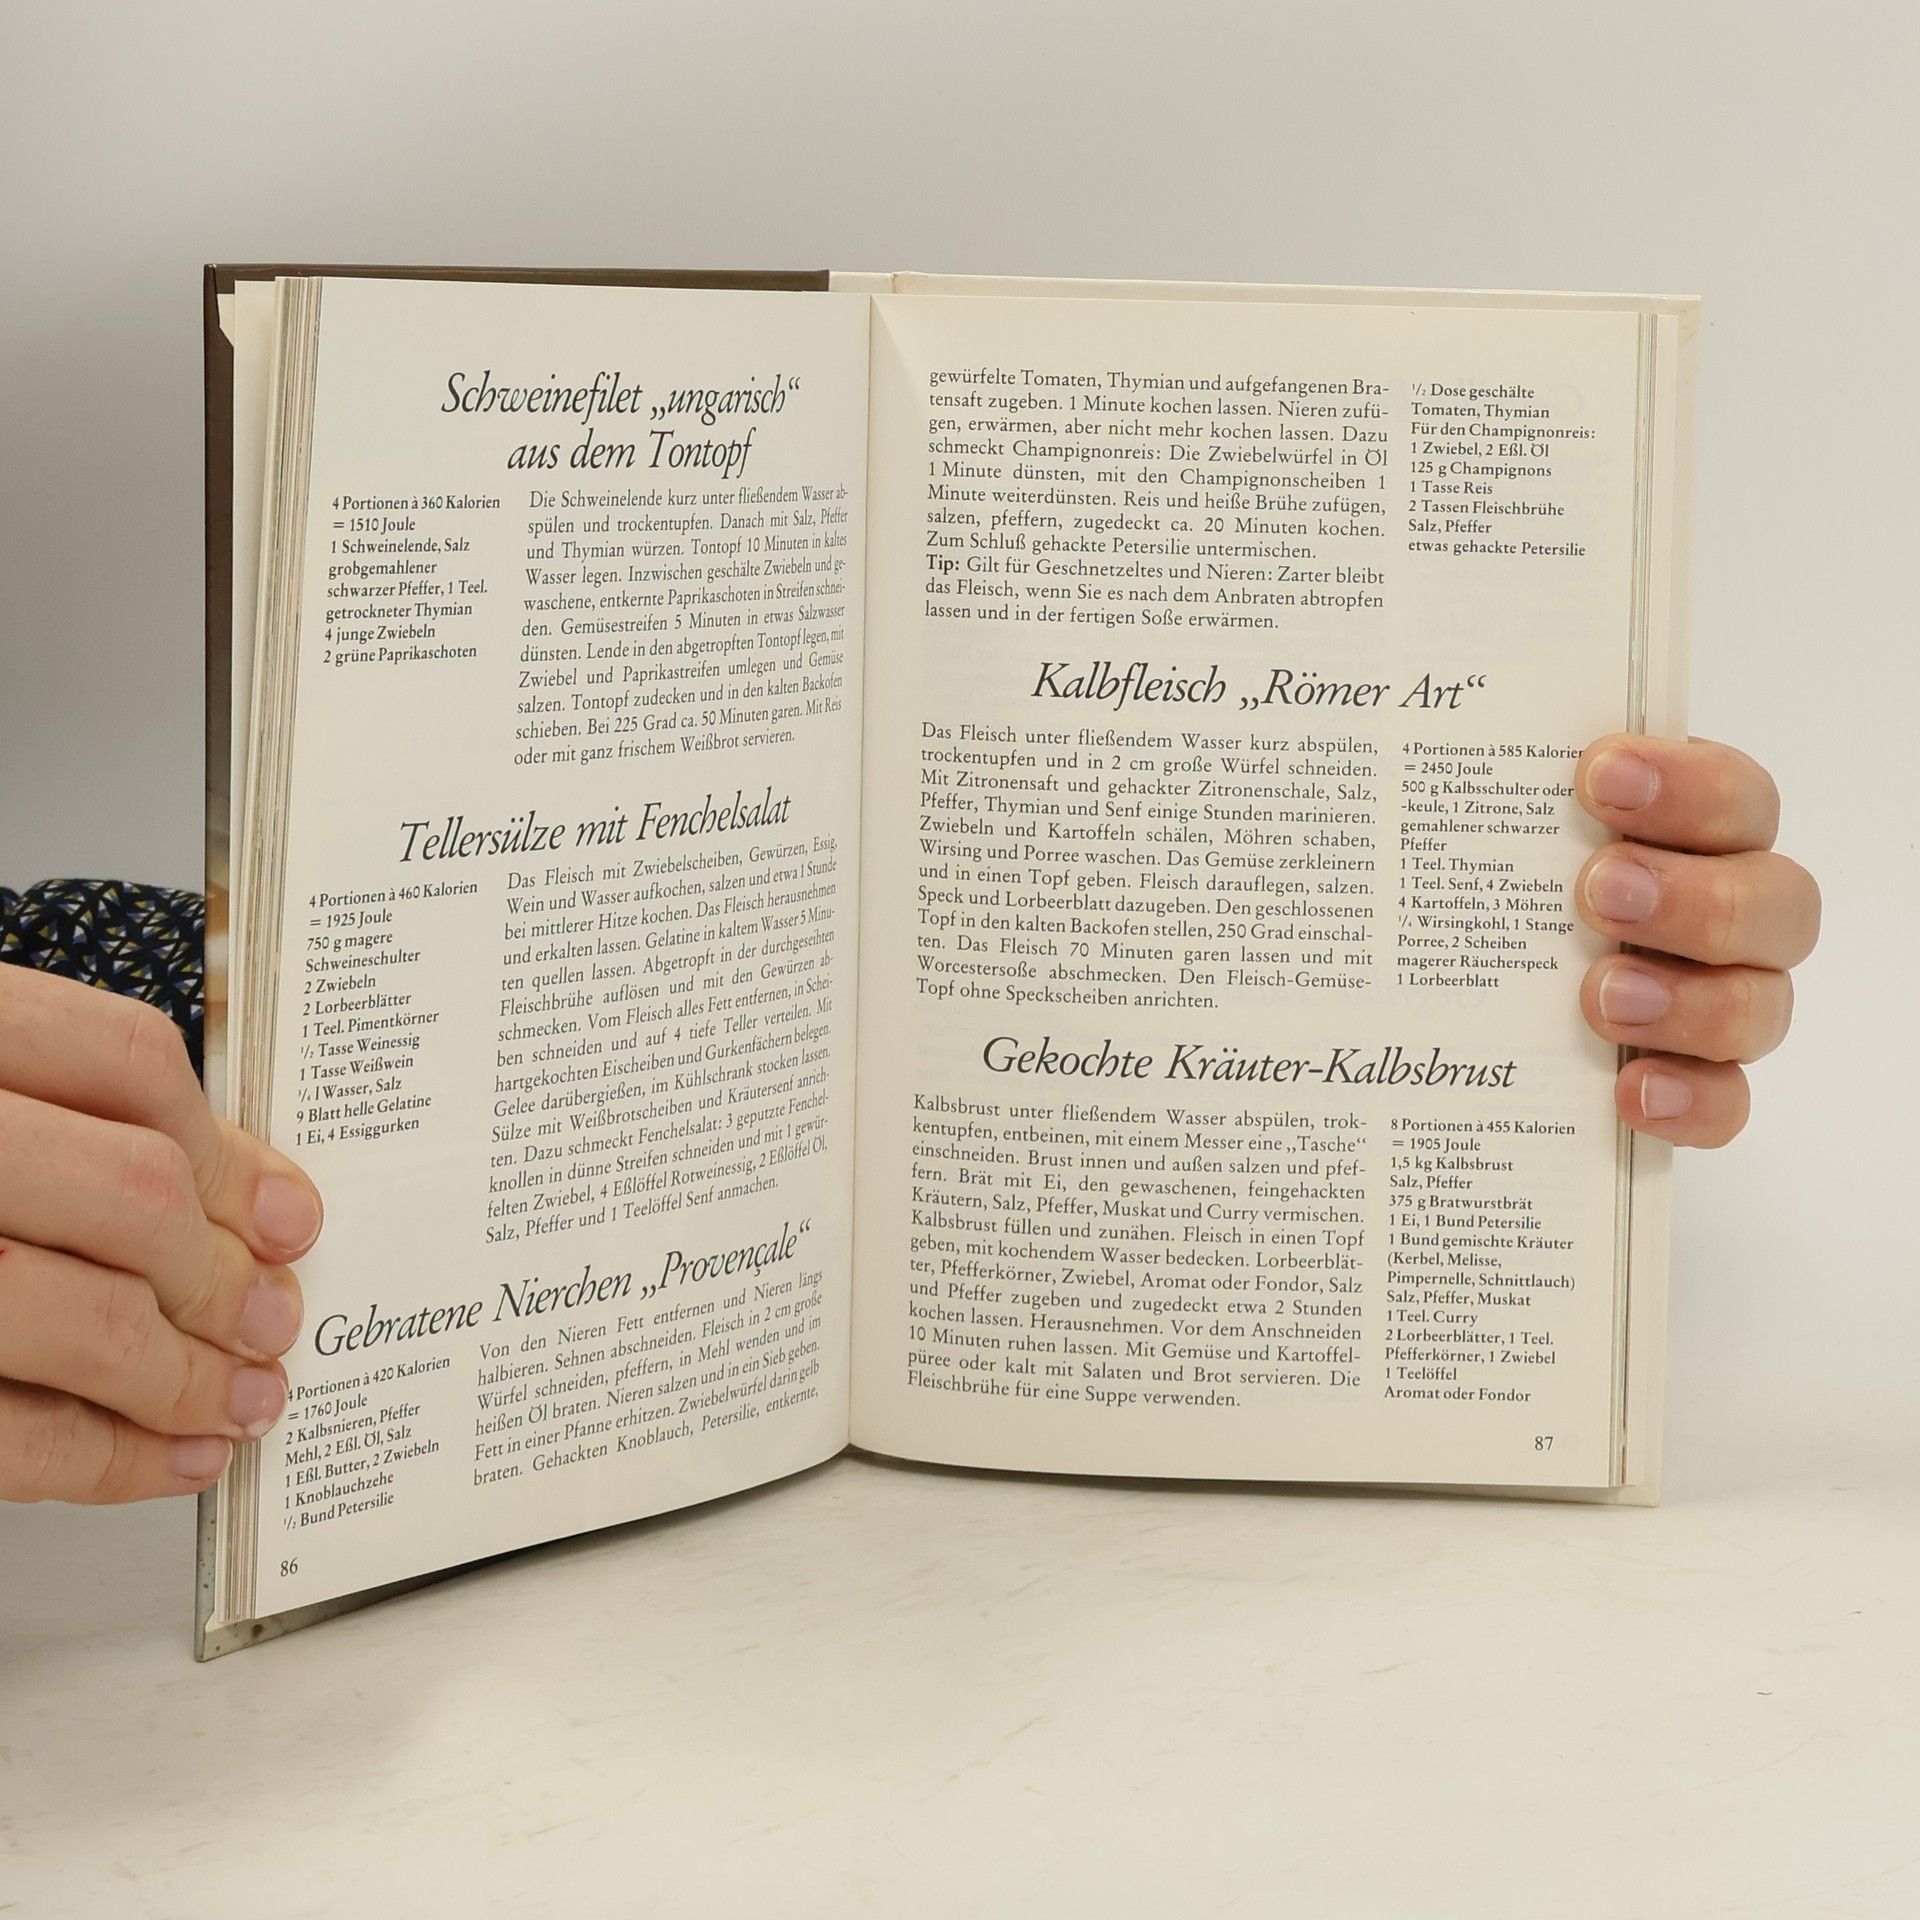 Schweinefilet „ungarisch“
aus dem Tontopf
4 Portionen à 360 Kalorien
= 1510 Joule
1 Schweinelende, Salz
grobgemahlener
schwarzer Pfeffer, 1 Teel.
getrockneter Thymian
4 junge Zwiebeln
2 grüne Paprikaschoten
Die Schweinelende kurz unter fließendem Wasser ab-
spülen und trockentupfen. Danach mit Salz, Pfeffer
und Thymian würzen. Tontopf 10 Minuten in kaltes
Wasser legen. Inzwischen geschälte Zwiebeln und ge-
waschene, entkernte Paprikaschoten in Streifen schnei-
den. Gemüsestreifen 5 Minuten in etwas Salzwasser
dünsten. Lende in den abgetropften Tontopf legen, mit
Zwiebel und Paprikastreifen umlegen und Gemüse
salzen. Tontopf zudecken und in den kalten Backofen
schieben. Bei 225 Grad ca. 50 Minuten garen. Mit Reis
oder mit ganz frischem Weißbrot servieren.
Tellersülze mit Fenchelsalat
4 Portionen à 460 Kalorien
= 1925 Joule
750 g magere
Schweineschulter
2 Zwiebeln
2 Lorbeerblätter
1 Teel. Pimentkörner
1/2 Tasse Weinessig
1 Tasse Weißwein
3/4 l Wasser, Salz
9 Blatt helle Gelatine
1 Ei, 4 Essiggurken
Das Fleisch mit Zwiebelscheiben, Gewürzen, Essig,
Wein und Wasser aufkochen, salzen und etwa 1 Stunde
bei mittlerer Hitze kochen. Das Fleisch herausnehmen
und erkalten lassen. Gelatine in kaltem Wasser 5 Minu-
ten quellen lassen. Abgetropft in der durchgeseihten
Fleischbrühe auflösen und mit den Gewürzen ab-
schmecken. Vom Fleisch alles Fett entfernen, in Schei-
ben schneiden und auf 4 tiefe Teller verteilen. Mit
hartgekochten Eischeiben und Gurkenfächern belegen.
Gelee darübergießen, im Kühlschrank stocken lassen.
Sülze mit Weißbrotscheiben und Kräutersenf anrich-
ten. Dazu schmeckt Fenchelsalat: 3 geputzte Fenchel-
knollen in dünne Streifen schneiden und mit 1 gewür-
felten Zwiebel, 4 Eßlöffel Rotweinessig, 2 Eßlöffel Öl,
Salz, Pfeffer und 1 Teelöffel Senf anmachen.
Gebratene Nierchen „Provençale“
4 Portionen à 420 Kalorien
= 1760 Joule
2 Kalbsnieren, Pfeffer
Mehl, 2 Eßl. Öl, Salz
1 Eßl. Butter, 2 Zwiebeln
1 Knoblauchzehe
1/2 Bund Petersilie
Von den Nieren Fett entfernen und Nieren längs
halbieren. Sehnen abschneiden. Fleisch in 2 cm große
Würfel schneiden, pfeffern, in Mehl wenden und im
heißen Öl braten. Nieren salzen und in ein Sieb geben.
Fett in einer Pfanne erhitzen. Zwiebelwürfel darin gelb
braten. Gehackten Knoblauch, Petersilie, entkernte,
86
gewürfelte Tomaten, Thymian und aufgefangenen Bra-
tensaft zugeben. 1 Minute kochen lassen. Nieren zufü-
gen, erwärmen, aber nicht mehr kochen lassen. Dazu
schmeckt Champignonreis: Die Zwiebelwürfel in Öl
1 Minute dünsten, mit den Champignonscheiben 1
Minute weiterdünsten. Reis und heiße Brühe zufügen,
salzen, pfeffern, zugedeckt ca. 20 Minuten kochen.
Zum Schluß gehackte Petersilie untermischen.
Tip: Gilt für Geschnetzeltes und Nieren: Zarter bleibt
das Fleisch, wenn Sie es nach dem Anbraten abtropfen
lassen und in der fertigen Soße erwärmen.
1/2 Dose geschälte
Tomaten, Thymian
Für den Champignonreis:
1 Zwiebel, 2 Eßl. Öl
125 g Champignons
1 Tasse Reis
2 Tassen Fleischbrühe
Salz, Pfeffer
etwas gehackte Petersilie
Kalbfleisch „Römer Art“
Das Fleisch unter fließendem Wasser kurz abspülen,
trockentupfen und in 2 cm große Würfel schneiden.
Mit Zitronensaft und gehackter Zitronenschale, Salz,
Pfeffer, Thymian und Senf einige Stunden marinieren.
Zwiebeln und Kartoffeln schälen, Möhren schaben,
Wirsing und Porree waschen. Das Gemüse zerkleinern
und in einen Topf geben. Fleisch darauflegen, salzen.
Speck und Lorbeerblatt dazugeben. Den geschlossenen
Topf in den kalten Backofen stellen, 250 Grad einschal-
ten. Das Fleisch 70 Minuten garen lassen und mit
Worcestersoße abschmecken. Den Fleisch-Gemüse-
Topf ohne Speckscheiben anrichten.
4 Portionen à 585 Kalorien
= 2450 Joule
500 g Kalbsschulter oder
-keule, 1 Zitrone, Salz
gemahlener schwarzer
Pfeffer
1 Teel. Thymian
1 Teel. Senf, 4 Zwiebeln
4 Kartoffeln, 3 Möhren
1/4 Wirsingkohl, 1 Stange
Porree, 2 Scheiben
magerer Räucherspeck
1 Lorbeerblatt
Gekochte Kräuter-Kalbsbrust
Kalbsbrust unter fließendem Wasser abspülen, trok-
kentupfen, entbeinen, mit einem Messer eine „Tasche“
einschneiden. Brust innen und außen salzen und pfef-
fern. Brät mit Ei, den gewaschenen, feingehackten
Kräutern, Salz, Pfeffer, Muskat und Curry vermischen.
Kalbsbrust füllen und zunähen. Fleisch in einen Topf
geben, mit kochendem Wasser bedecken. Lorbeerblät-
ter, Pfefferkörner, Zwiebel, Aromat oder Fondor, Salz
und Pfeffer zugeben und zugedeckt etwa 2 Stunden
kochen lassen. Herausnehmen. Vor dem Anschneiden
10 Minuten ruhen lassen. Mit Gemüse und Kartoffel-
püree oder kalt mit Salaten und Brot servieren. Die
Fleischbrühe für eine Suppe verwenden.
8 Portionen à 455 Kalorien
= 1905 Joule
1,5 kg Kalbsbrust
Salz, Pfeffer
375 g Bratwurstbrät
1 Ei, 1 Bund Petersilie
1 Bund gemischte Kräuter
(Kerbel, Melisse,
Pimpernelle, Schnittlauch)
Salz, Pfeffer, Muskat
1 Teel. Curry
2 Lorbeerblätter, 1 Teel.
Pfefferkörner, 1 Zwiebel
1 Teelöffel
Aromat oder Fondor
87